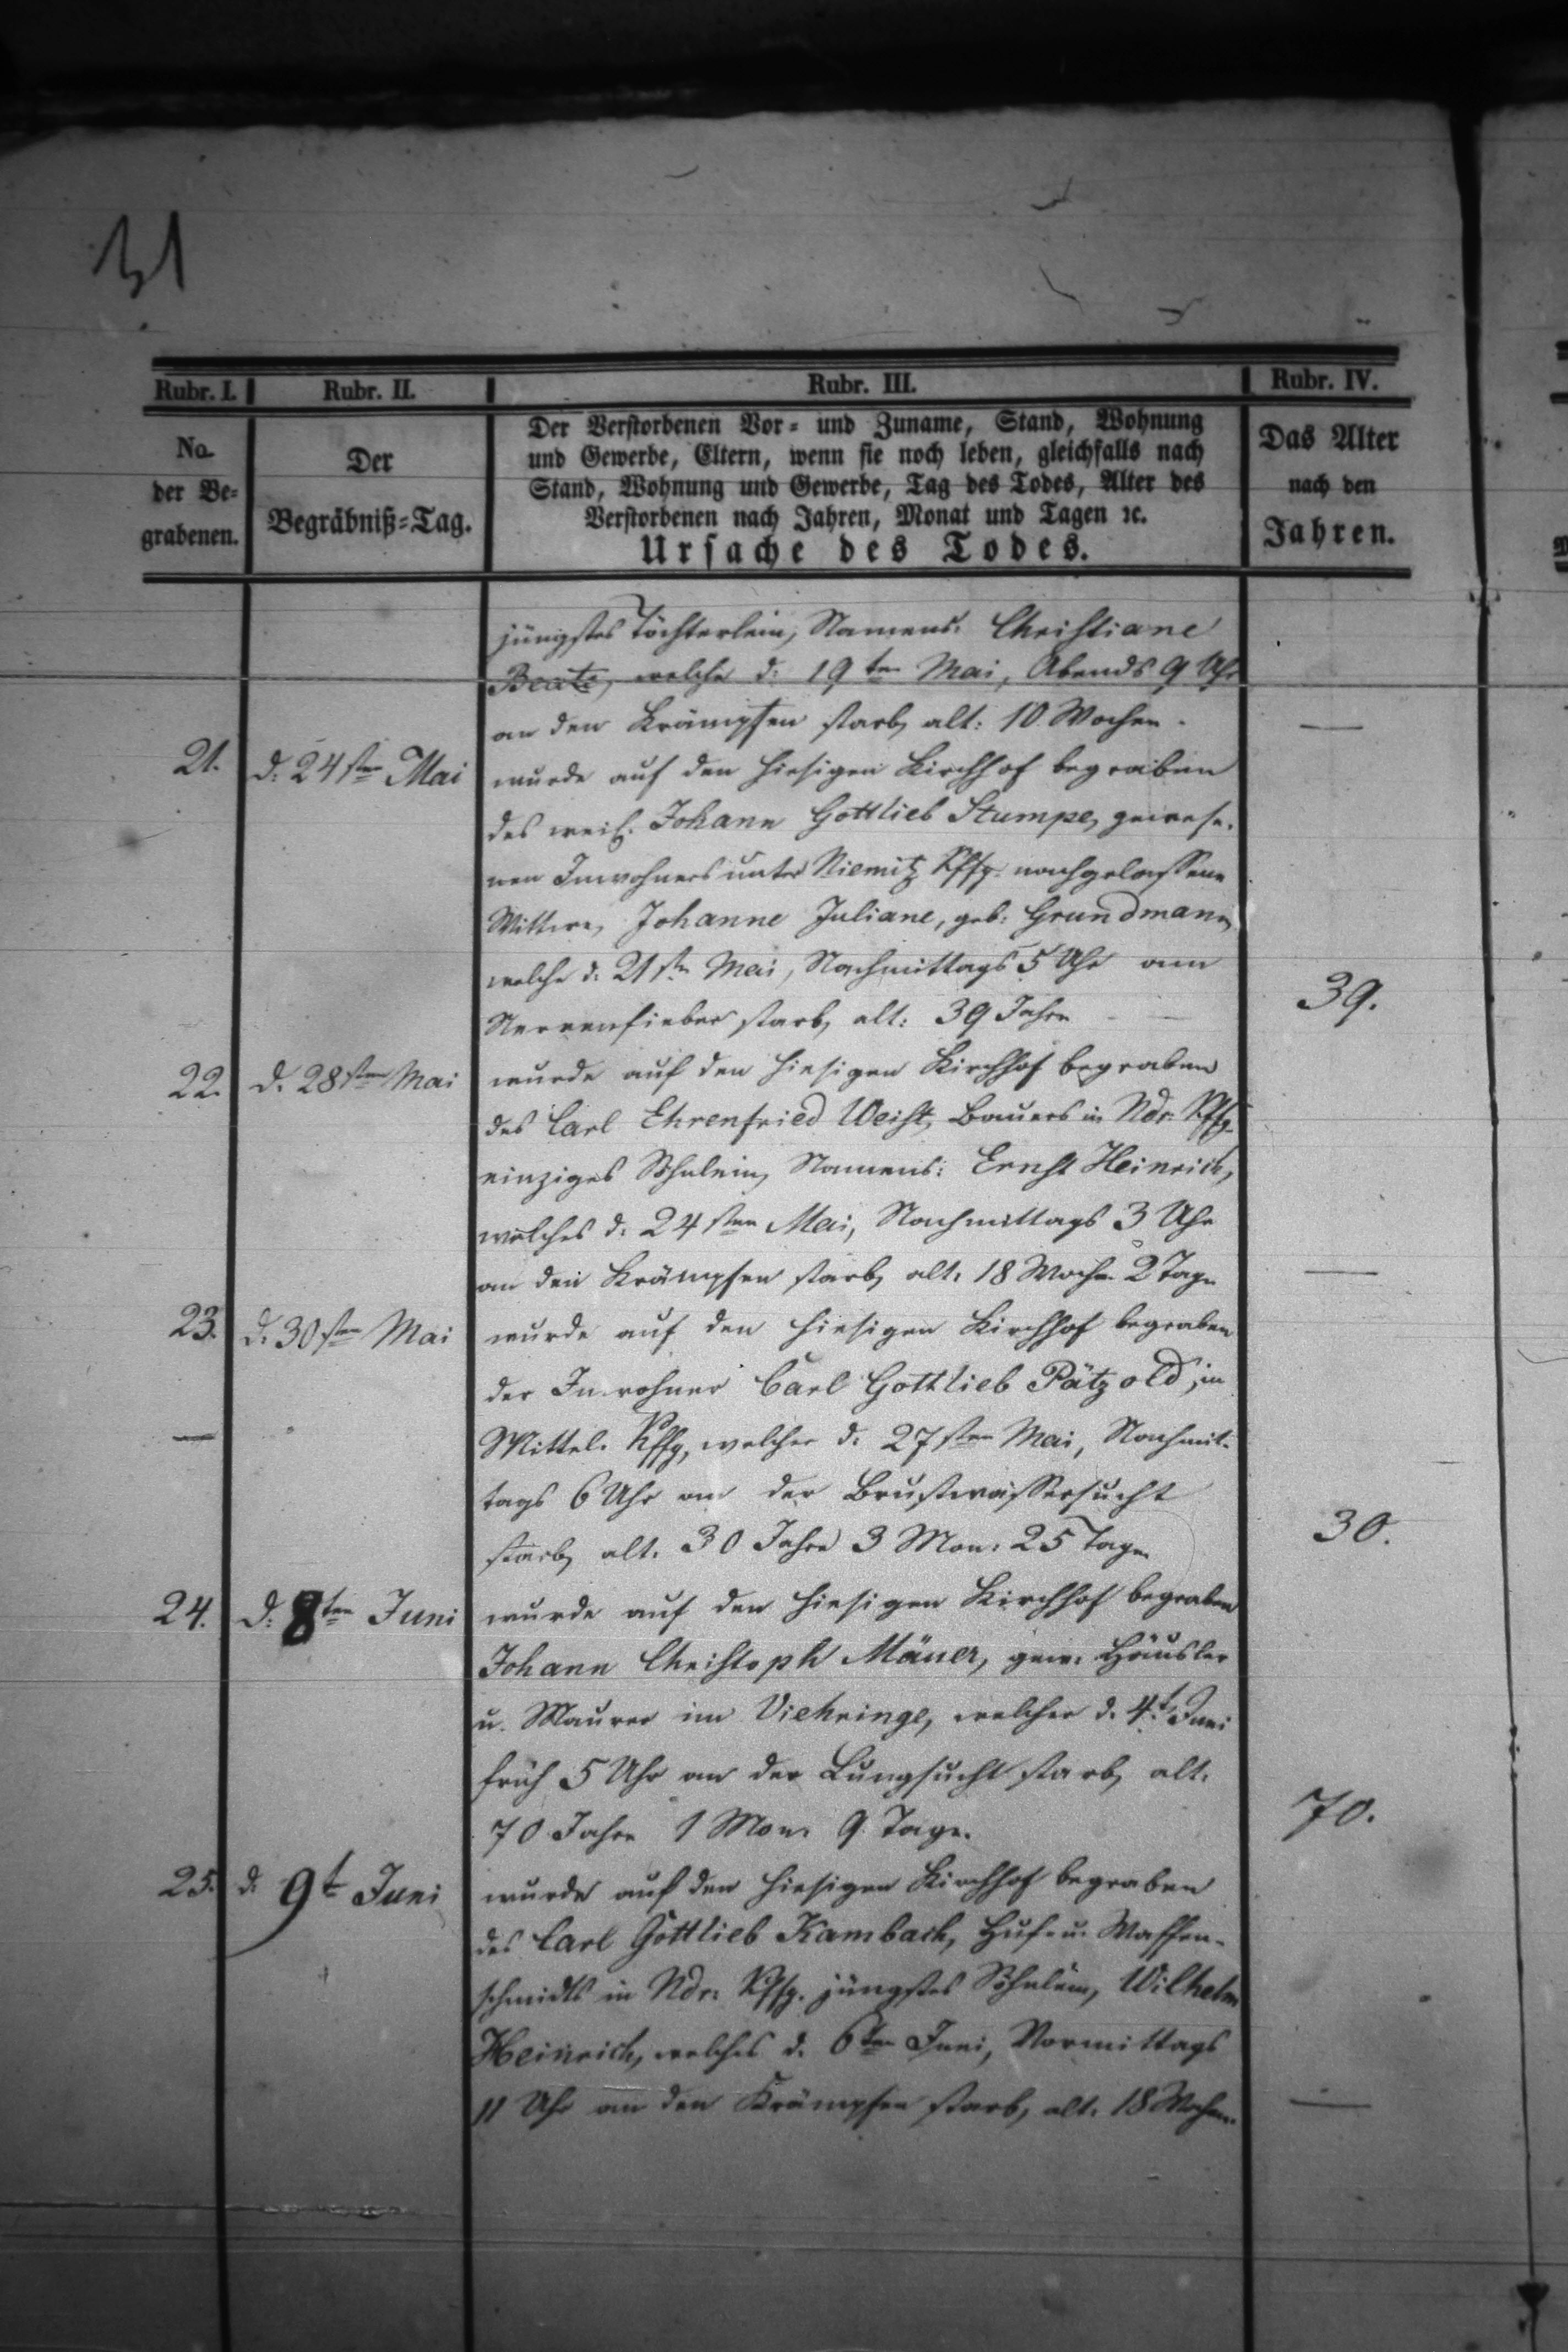 31
Rubr. I. Rubr. II. Rubr. III. Rubr. IV.
No. der Be- grabenen.
Der Begräbniß-Tag.
Der Verstorbenen Vor- und Zuname, Stand, Wohnung
und Gewerbe, Eltern, wenn sie noch leben, gleichfalls nach
Stand, Wohnung und Gewerbe, Tag des Todes, Alter des
Verstorbenen nach Jahren, Monat und Tagen ꝛc.
Ursache des Todes.
Das Alter
nach den
Jahren.
jüngstes Töchterlein, Namens: Christiane
Beate, welche d: 19ten Mai, Abends 9 Uhr
an den Krämpfen starb, alt: 10 Wochen. —
21. d: 24sten Mai wurde auf den hiesigen Kirchhof begraben
des weil. Johann Gottlieb Stumpe, gewese-
nen Inwohners unter Niemitz Kffg. nachgelassene
Wittwe, Johanne Juliane, geb: Grundmann,
welche d: 21sten Mai, Nachmittags 5 Uhr am
Nervenfieber starb, alt: 39 Jahre 39.
22. d. 28sten Mai wurde auf den hiesigen Kirchhof begraben
des Carl Ehrenfried Weist, Bauers in Ndr. Kffg.
einziges Söhnlein, Namens: Ernst Heinrich,
welches d: 24sten Mai, Nachmittags 3 Uhr
an den Krämpfen starb, alt: 18 Woch. 2 Tage —
23. d. 30sten Mai wurde auf den hiesigen Kirchhof begraben
der Inwohner Carl Gottlieb Pätzold, in
Mittel. Kffg, welcher d: 27sten Mai, Nachmit-
tags 6 Uhr an der Brustwassersucht
starb, alt. 30 Jahre 3 Mon. 25 Tage 30.
24. d. 8ten Juni wurde auf den hiesigen Kirchhof begraben
Johann Christoph Mäuer, gew: Häusler
u. Maurer im Viehringe, welcher d. 4t. Juni
früh 5 Uhr an der Lungsucht starb, alt.
70 Jahre 1 Mon. 9 Tage. 70.
25. d. 9t Juni wurde auf den hiesigen Kirchhof begraben
des Carl Gottlieb Kambach, Huf- u. Waffen-
schmidts in Ndr: Kffg. jüngstes Söhnlein, Wilhelm
Heinrich, welches d. 6ten Juni, Vormittags
11 Uhr an den Krämpfen starb, alt. 18 Wochen. —